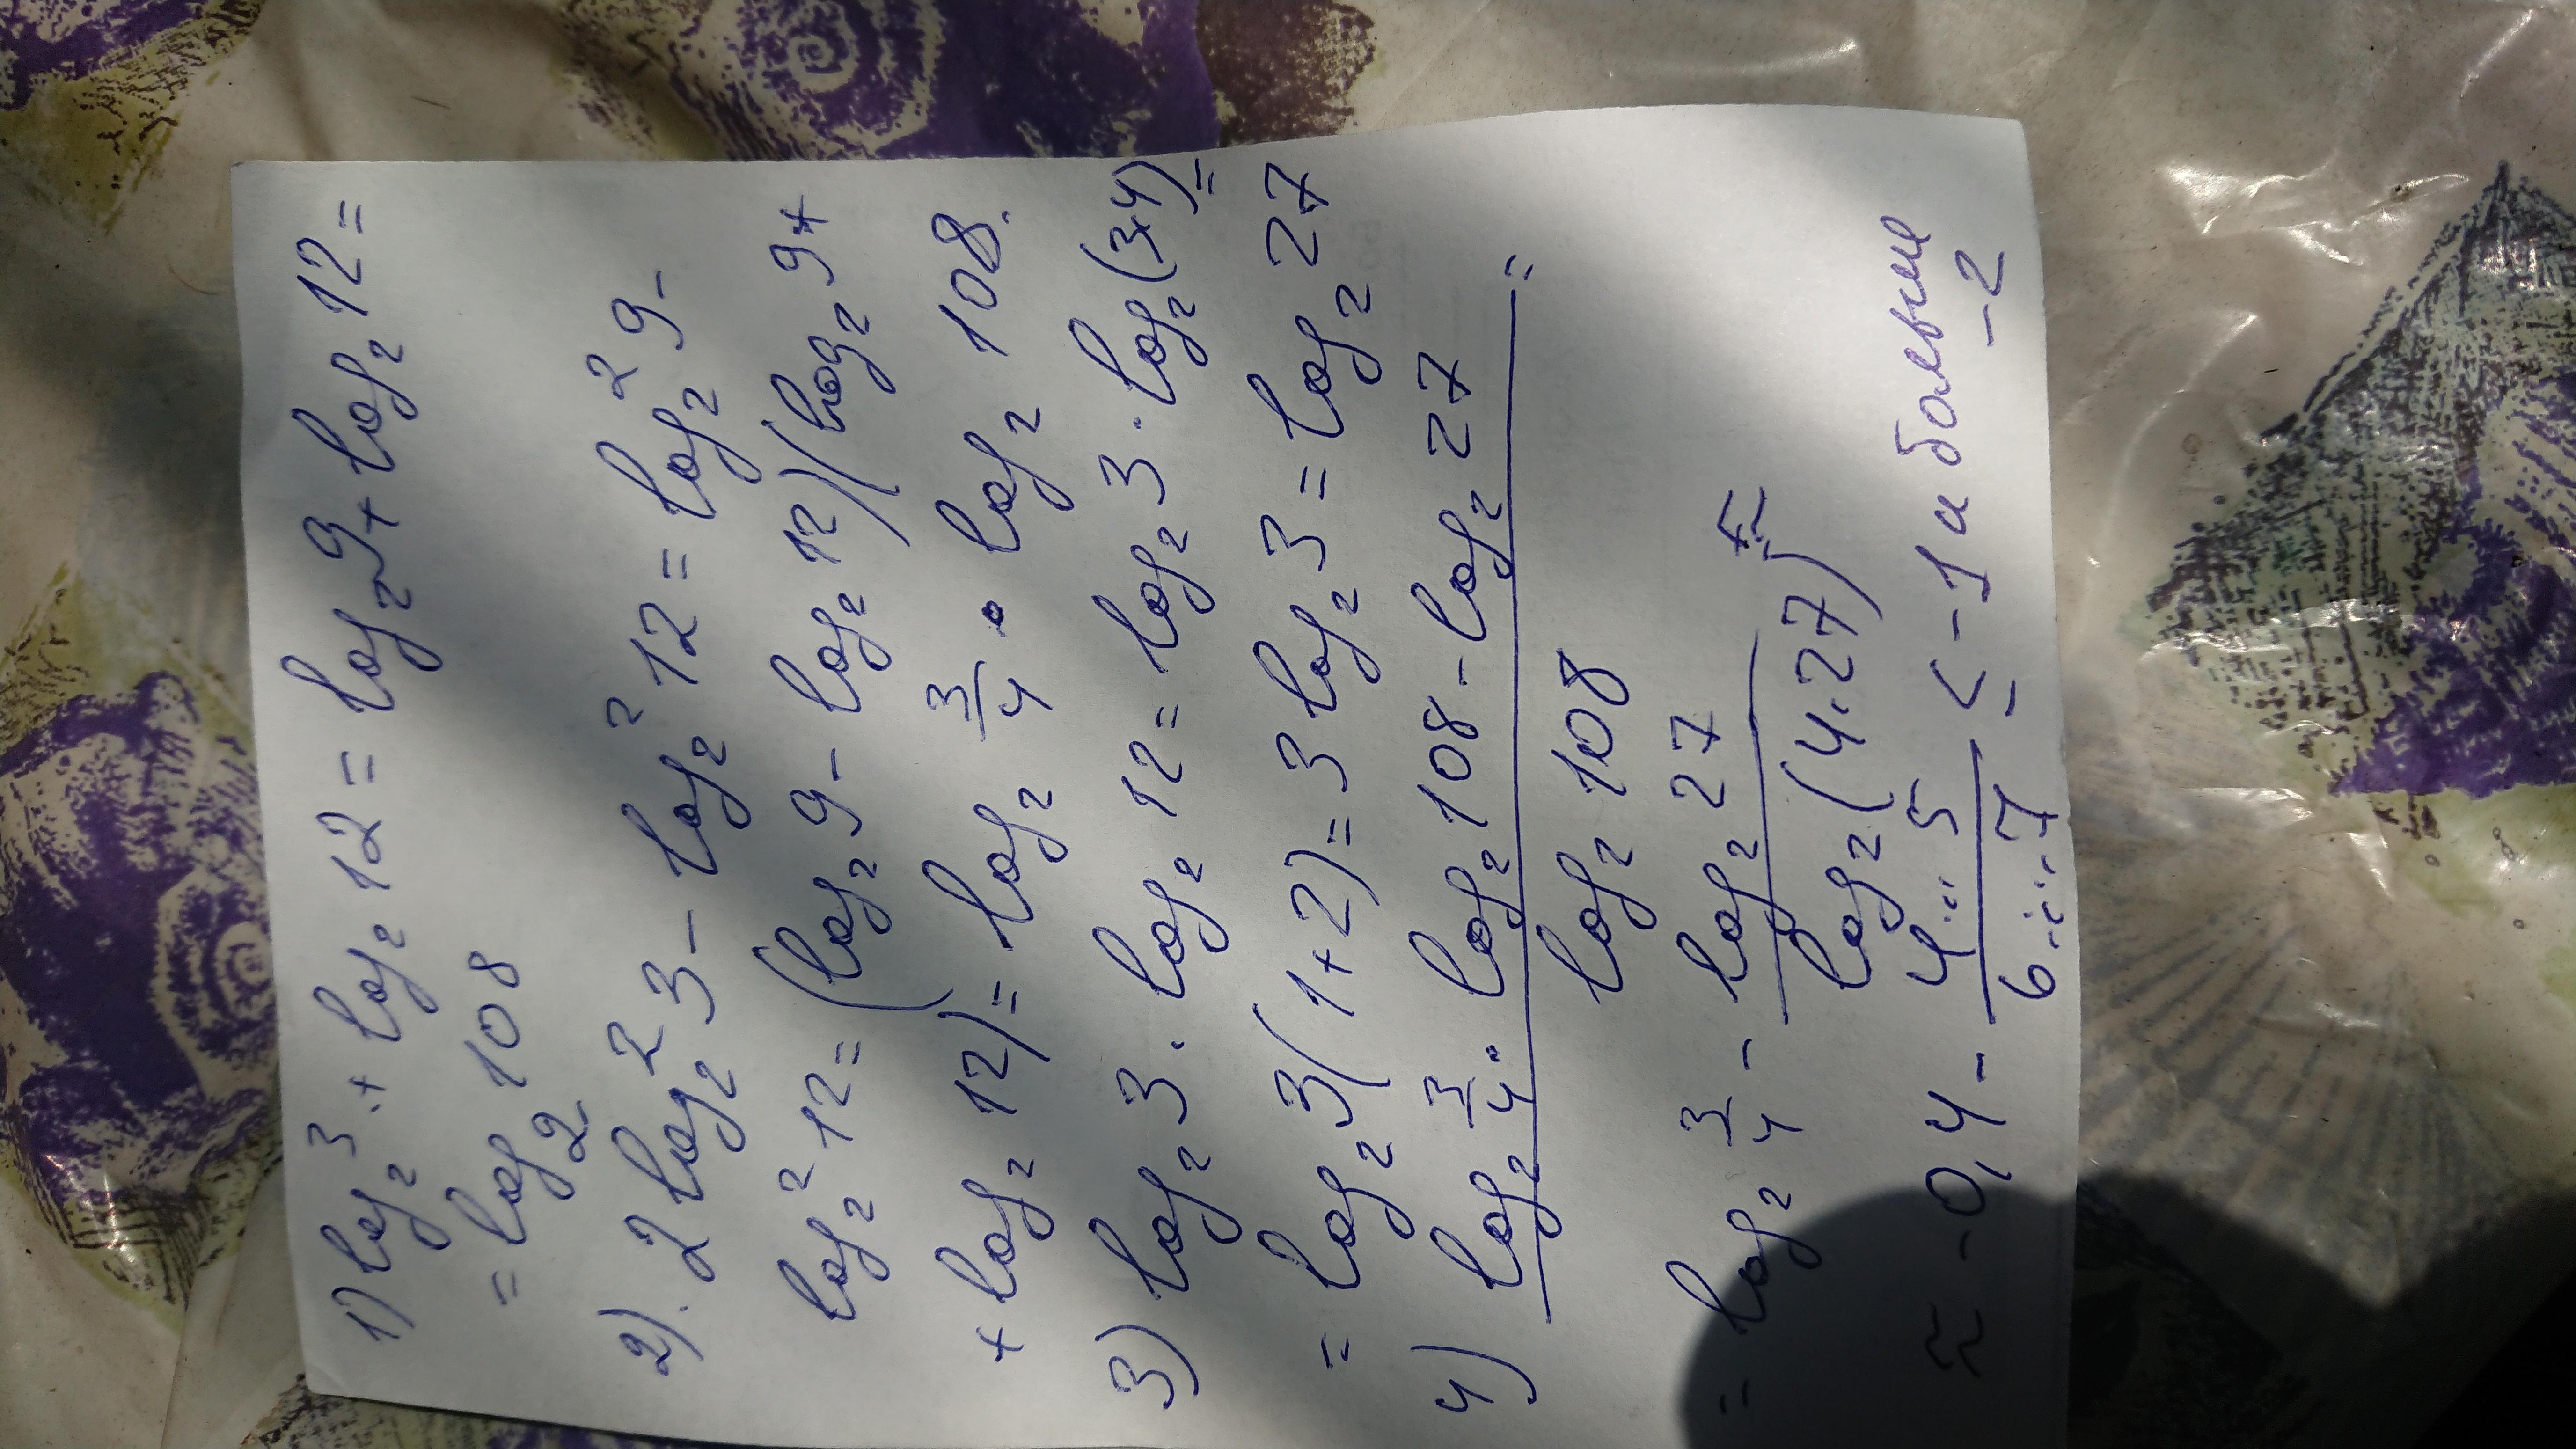 1) log₂ 3 · + log₂ 12 = log₂ 9 + log₂ 12 =
= log₂ 108
2). 2 log₂² 3 - log₂² 12 = log₂² 9 -
log₂² 12 = (log₂ 9 - log₂ 12)(log₂ 9 +
+ log₂ 12) = log₂ 3/4 · log₂ 108.
3) log₂ 3 · log₂ 12 = log₂ 3 · log₂ (3+4) =
= log₂ 3 (1+2) = 3 log₂ 3 = log₂ 27
4) log₂ 3/4 · log₂ 108 - log₂ 27 =
log₂ 108
= log₂ 3/4 - log₂ 27 / log₂ (4·27) ≈
≈ -0,4 - 4...5 / 6...7 ≤ -1 и больше
-2